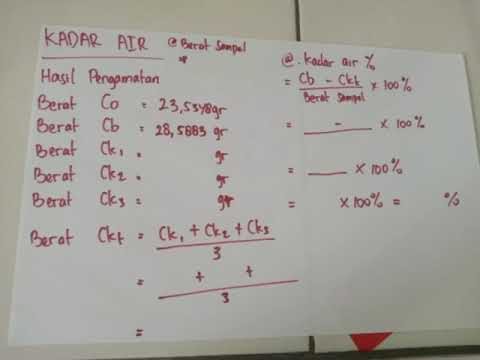 KADAR AIR
@ Berat Sampel
=
Hasil Pengamatan
Berat Co = 23,5348gr
Berat Cb = 28,5883 gr
Berat Ck1 = gr
Berat Ck2 = gr
Berat Ck3 = gr
Berat Ckt = Ck1 + Ck2 + Ck3
3
= + +
3
=
@. kadar air %
= Cb - Ckt x 100%
Berat Sampel
= - x 100%
= x 100%
= x 100% = %